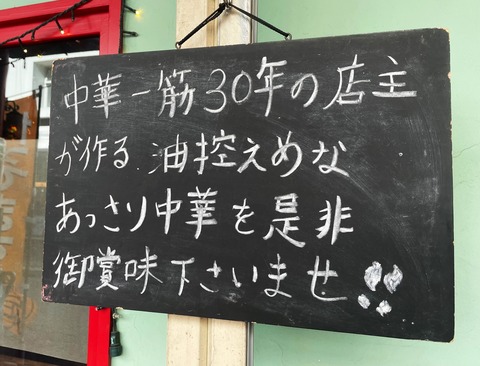 中華一筋30年の店主
が作る 油控えめな
あっさり中華を是非
御賞味下さいませ!!